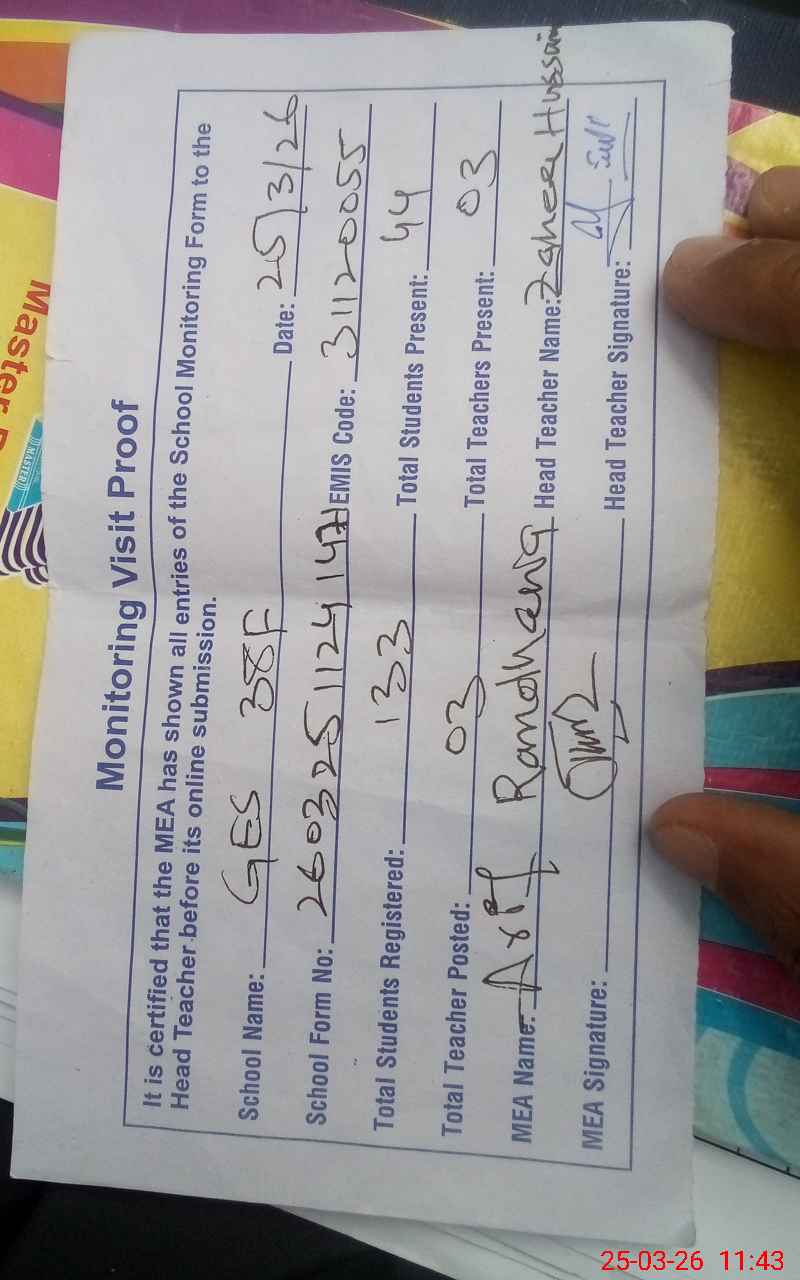 Monitoring Visit Proof
It is certified that the MEA has shown all entries of the School Monitoring Form to the
Head Teacher before its online submission.
School Name: GES 38F Date: 25/3/26
School Form No: 260325112414 EMIS Code: 31120055
Total Students Registered: 133 Total Students Present: 44
Total Teacher Posted: 03 Total Teachers Present: 03
MEA Name: Arif Randhawa Head Teacher Name: Zaheer Hussain
MEA Signature: Head Teacher Signature:
Master
MASTER
25-03-26 11:43